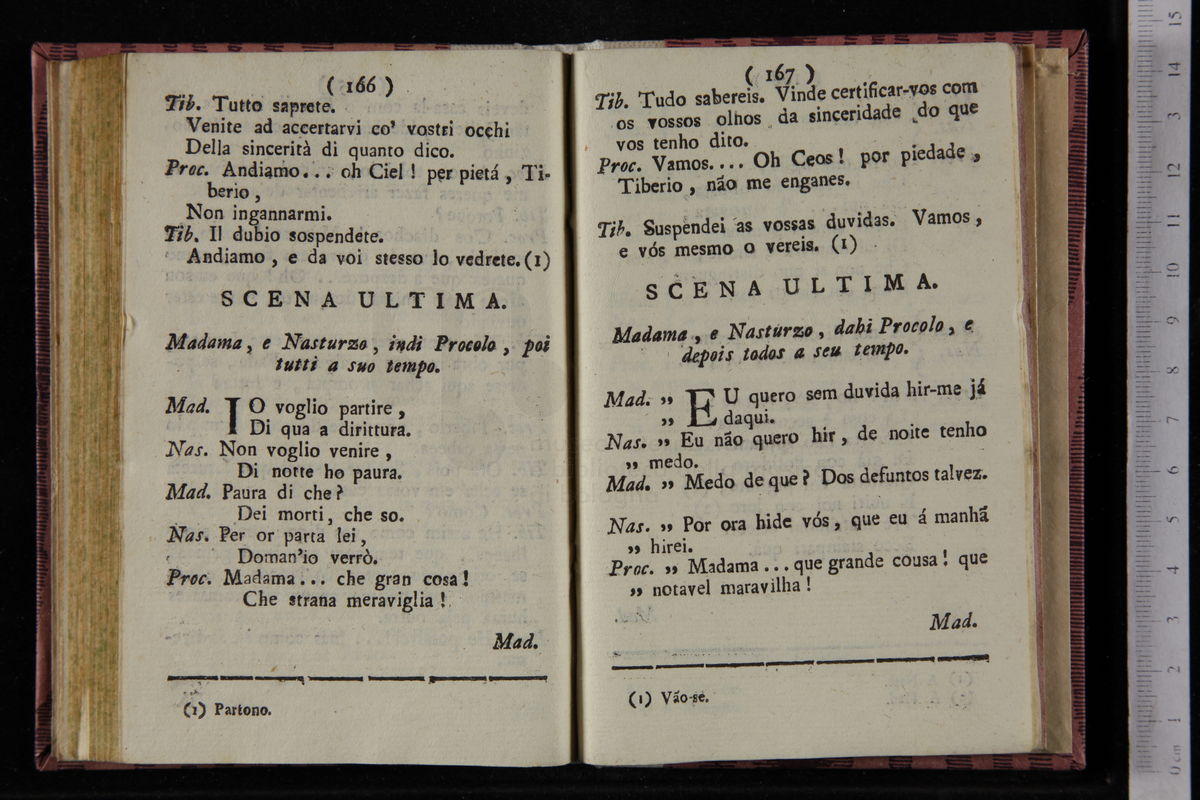 ( 166 )
Tib. Tutto saprete.
Venite ad accertarvi co' vostri occhi
Della sincerità di quanto dico.
Proc. Andiamo... oh Ciel! per pietá, Ti-
berio,
Non ingannarmi.
Tib. Il dubio sospendete.
Andiamo, e da voi stesso lo vedrete. (1)
SCENA ULTIMA.
Madama, e Nasturzo, indi Procolo, poi
tutti a suo tempo.
Mad. IO voglio partire,
Di qua a dirittura.
Nas. Non voglio venire,
Di notte ho paura.
Mad. Paura di che?
Dei morti, che so.
Nas. Per or parta lei,
Doman'io verrò.
Proc. Madama... che gran cosa!
Che strana meraviglia!
Mad.
(1) Partono.
( 167 )
Tib. Tudo sabereis. Vinde certificar-vos com
os vossos olhos da sinceridade do que
vos tenho dito.
Proc. Vamos.... Oh Ceos! por piedade,
Tiberio, não me enganes.
Tib. Suspendei as vossas duvidas. Vamos,
e vós mesmo o vereis. (1)
SCENA ULTIMA.
Madama, e Nasturzo, dahi Procolo, e
depois todos a seu tempo.
Mad. „ EU quero sem duvida hir-me já
„ daqui.
Nas. „ Eu não quero hir, de noite tenho
„ medo.
Mad. „ Medo de que? Dos defuntos talvez.
Nas. „ Por ora hide vós, que eu á manhã
„ hirei.
Proc. „ Madama... que grande cousa! que
„ notavel maravilha!
Mad.
(1) Vão-se.
15
14
13
12
11
10
9
8
7
6
5
4
3
2
1
0 cm